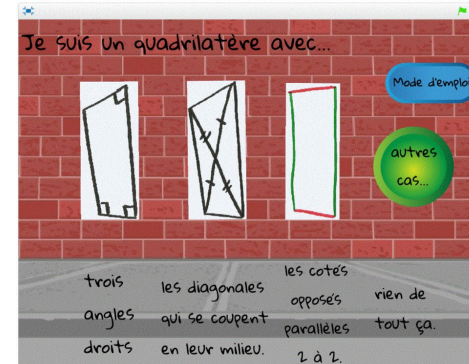 Je suis un quadrilatère avec...
Mode d'emploi
autres
cas...
trois
angles
droits
les diagonales
qui se coupent
en leur milieu.
les cotés
opposés
parallèles
2 à 2.
rien de
tout ça.